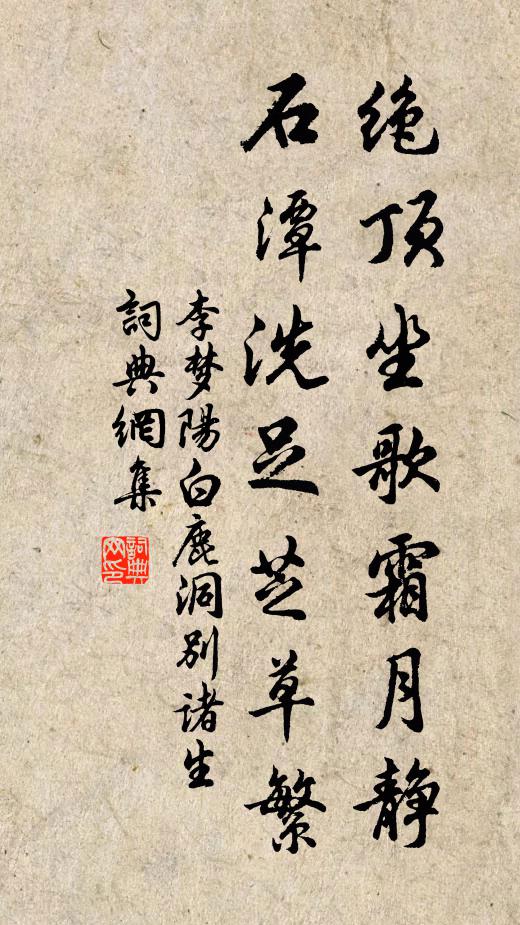 绝顶坐歌霜月静
石潭洗足芝草繁
李梦陽白鹿洞别诸生
詞典網集
詞典
网印